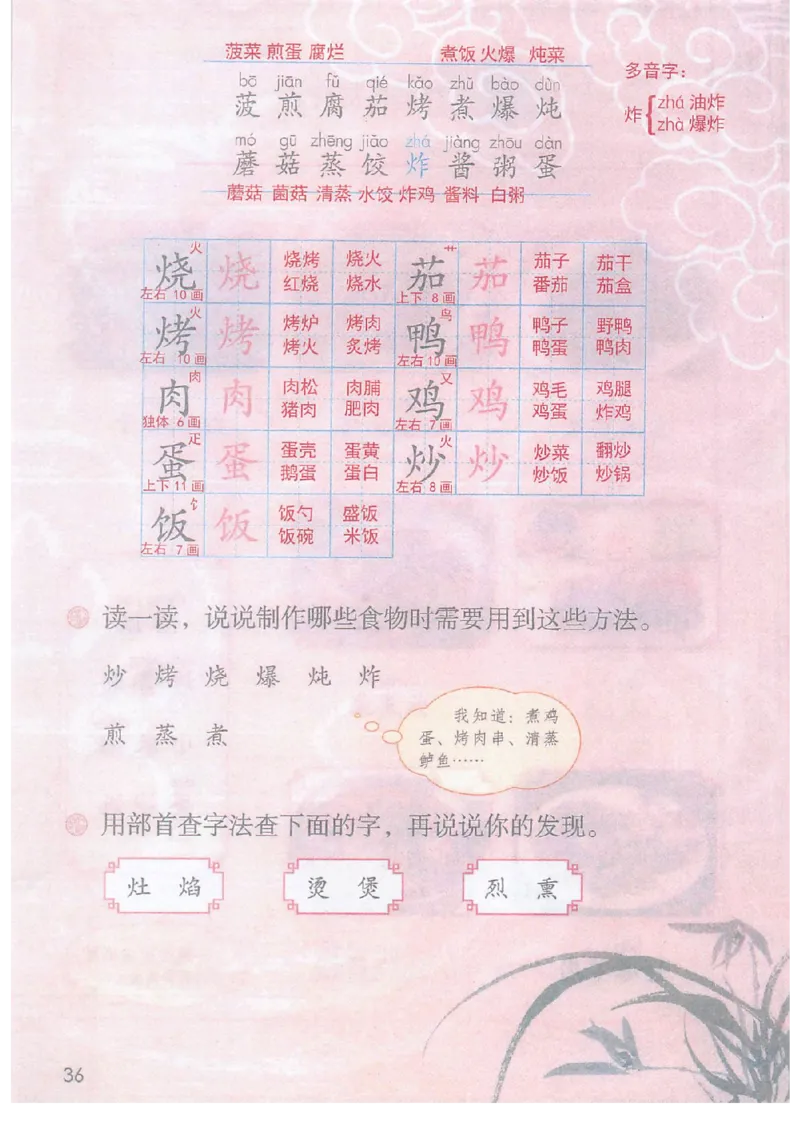 菠菜 煎蛋 腐烂 煮饭 火爆 炖菜
bō jiān fǔ qié kǎo zhǔ bào dùn
菠 煎 腐 茄 烤 煮 爆 炖
mó gū zhēng jiǎo zhá jiàng zhōu dàn
蘑 菇 蒸 饺 炸 酱 粥 蛋
蘑菇 菌菇 清蒸 水饺 炸鸡 酱料 白粥
多音字：
炸{
zhá 油炸
zhà 爆炸
烧 火 烧 烧烤 烧火 茄 艹 茄 茄子 茄干
左右 10 画 红烧 烧水 上下 8 画 番茄 茄盒
烤 火 烤 烤炉 烤肉 鸭 鸟 鸭 鸭子 野鸭
左右 10 画 烤火 炙烤 左右 10 画 鸭蛋 鸭肉
肉 肉 肉 肉松 肉脯 鸡 又 鸡 鸡毛 鸡腿
独体 6 画 猪肉 肥肉 左右 7 画 鸡蛋 炸鸡
蛋 疋 蛋 蛋壳 蛋黄 炒 火 炒 炒菜 翻炒
上下 11 画 鹅蛋 蛋白 左右 8 画 炒饭 炒锅
饭 饣 饭 饭勺 盛饭
左右 7 画 饭碗 米饭
读一读，说说制作哪些食物时需要用到这些方法。
炒 烤 烧 爆 炖 炸
煎 蒸 煮
我知道：煮鸡
蛋、烤肉串、清蒸
鲈鱼……
用部首查字法查下面的字，再说说你的发现。
灶 焰 烫 煲 烈 熏
36